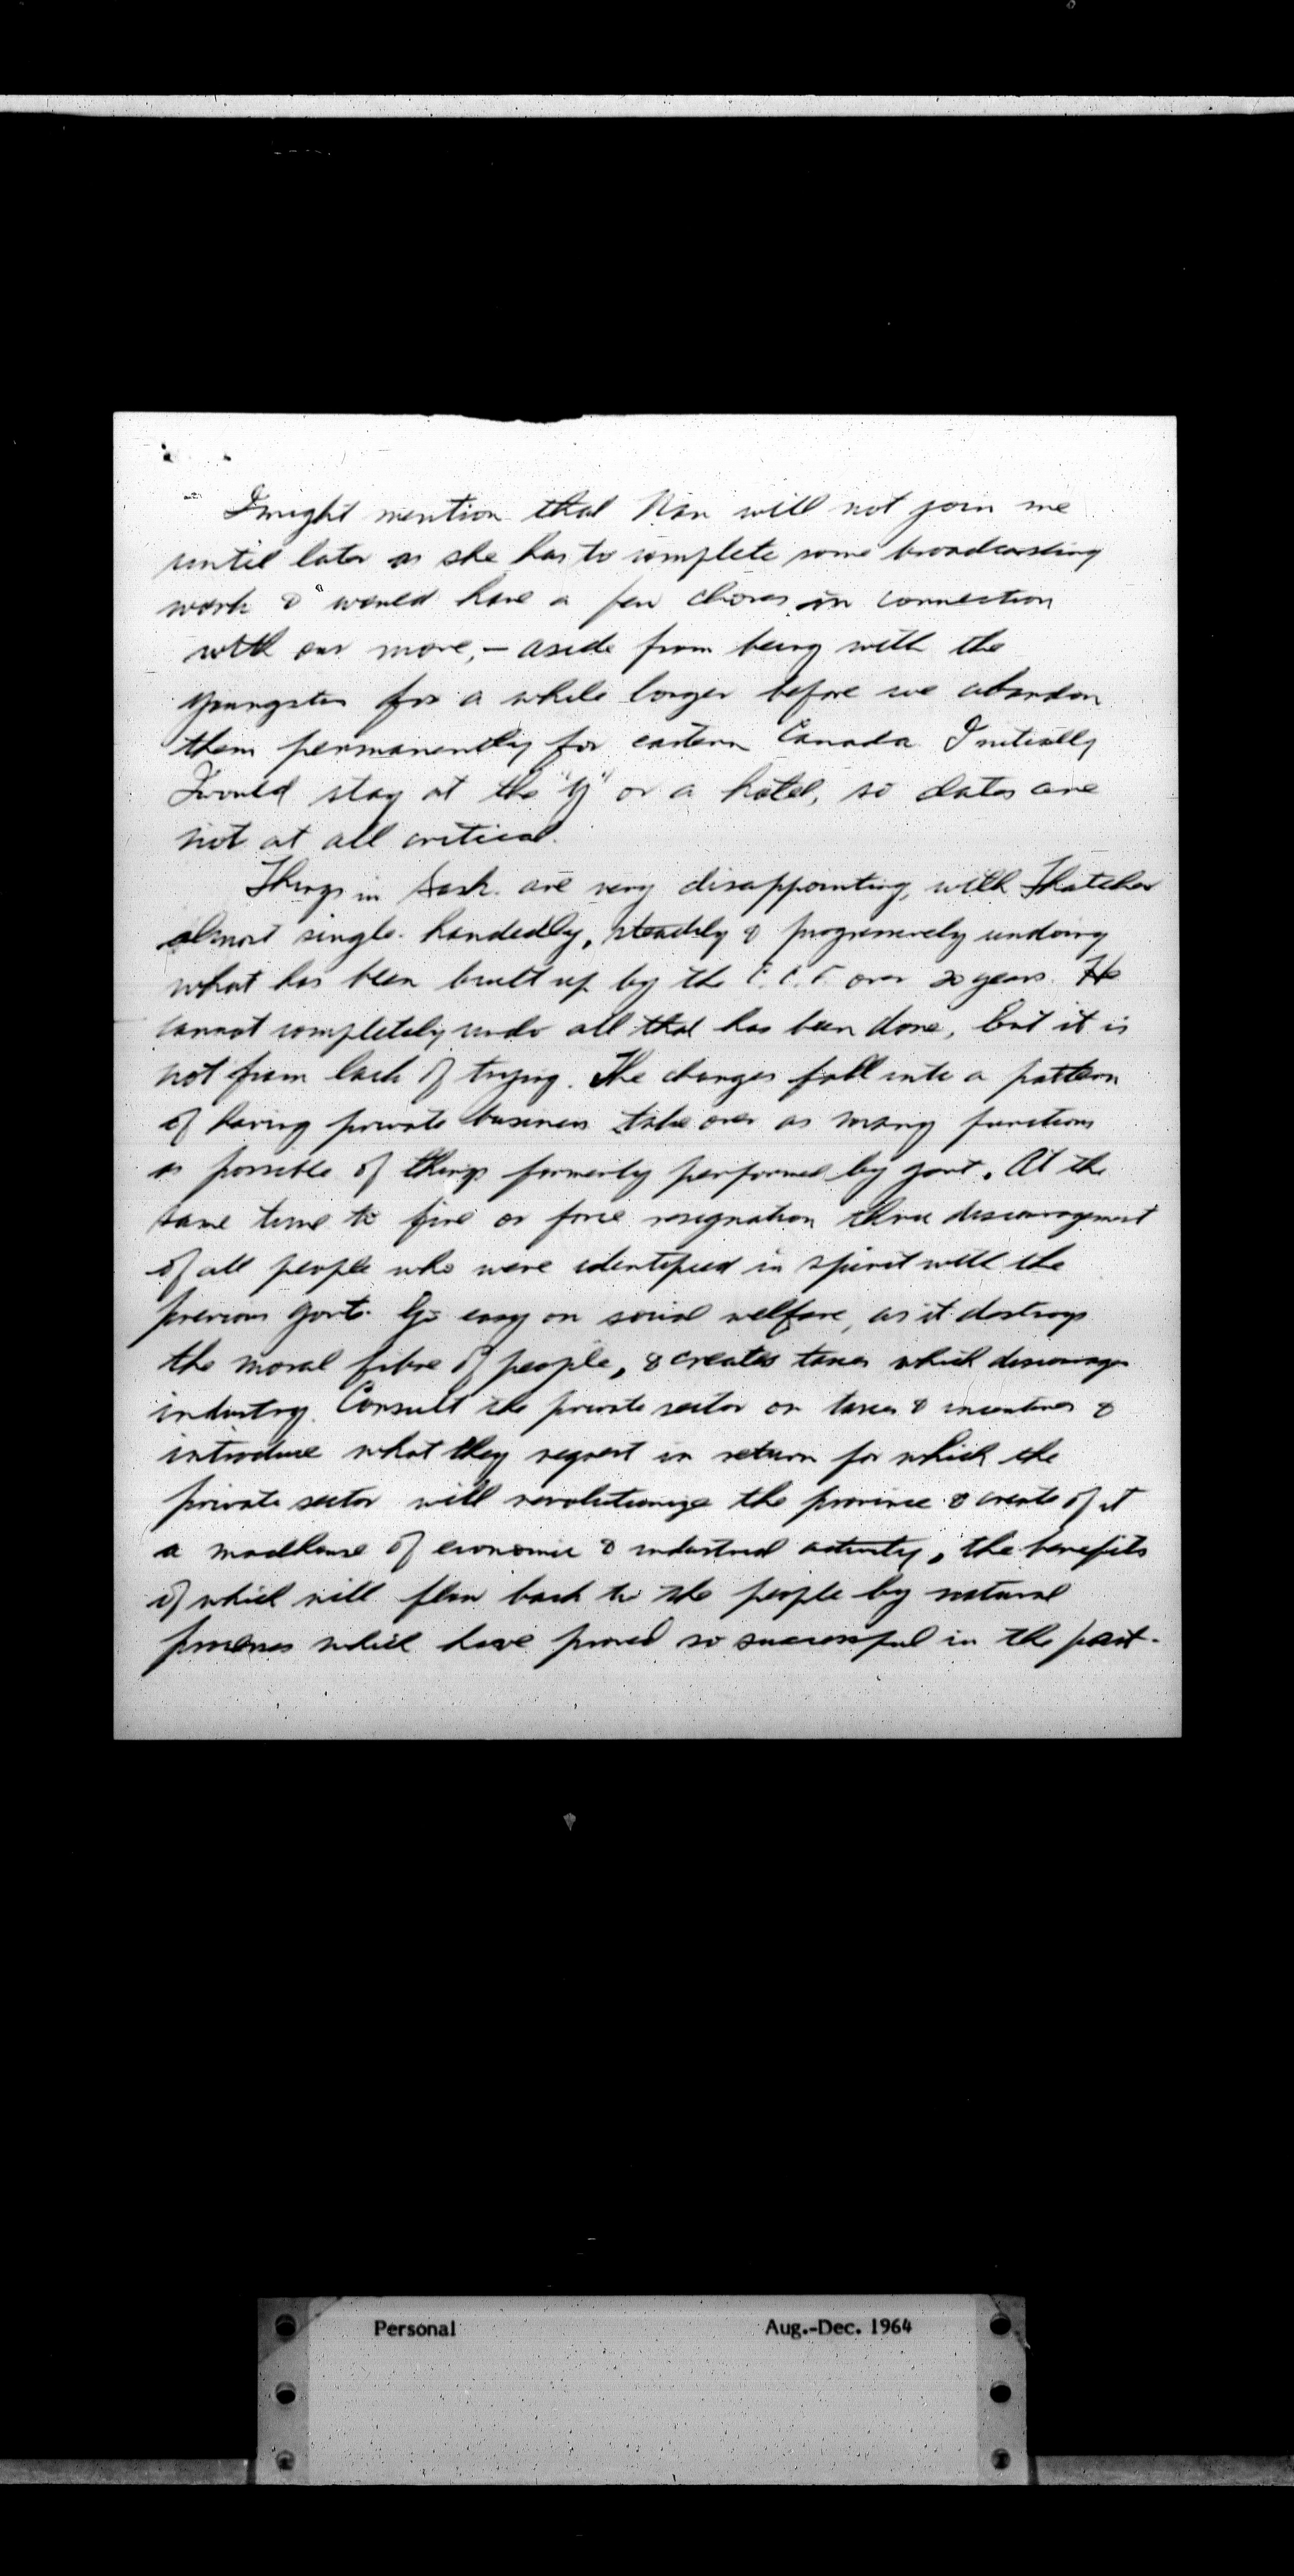 I might mention that Nan will not join me
until later as she has to complete some broadcasting
work & would have a few chores in connection
with our move, – aside from being with the
youngsters for a while longer before we abandon
them permanently for eastern Canada. Initially
I would stay at the "Y" or a hotel, so dates are
not at all critical.
Things in Sask. are very disappointing, with Thatcher
almost single-handedly, steadily & progressively undoing
what has been built up by the C.C.F. over 20 years. He
cannot completely undo all that has been done, but it is
not from lack of trying. The changes fall into a pattern
of having private business take over as many functions
as possible of things formerly performed by govt. At the
same time to fire or force resignation thru discouragement
of all people who were identified in spirit with the
previous govt. Go easy on social welfare, as it destroys
the moral fibre of people, & creates taxes which discourages
industry. Consult the private sector on taxes & incentives &
introduce what they request in return for which the
private sector will revolutionize the province & create of it
a madhouse of economic & industrial activity, the benefits
of which will flow back to the people by natural
processes which have proved so successful in the past.
Personal Aug.-Dec. 1964